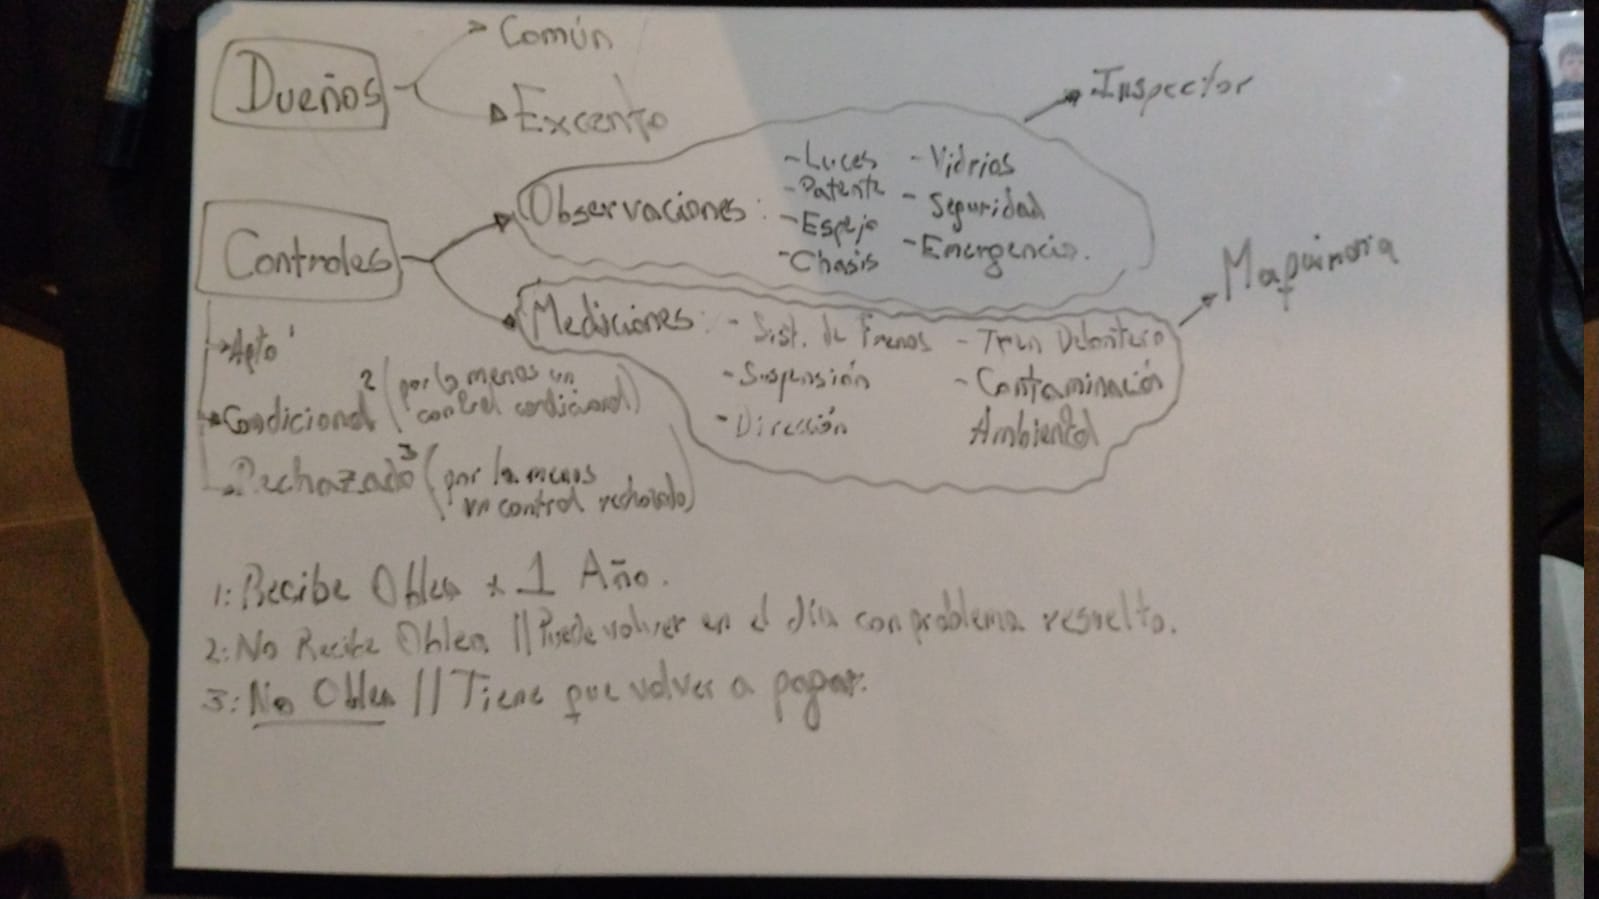 Dueños
Común
Excento
Inspector
Controles
Observaciones:
- Luces
- Patente
- Espejo
- Chasis
- Vidrios
- Seguridad
- Emergencia.
Maquinaria
Mediciones:
- Sist. de Frenos
- Suspensión
- Dirección
- Tren Delantero
- Contaminación
Ambiental
Apto 1
Condicional 2 (por lo menos un
control condicional)
Rechazado 3 (por lo menos
un control rechazado)
1: Recibe Oblea x 1 Año.
2: No Recibe Oblea // Puede volver en el día con problema resuelto.
3: No Oblea // Tiene que volver a pagar.